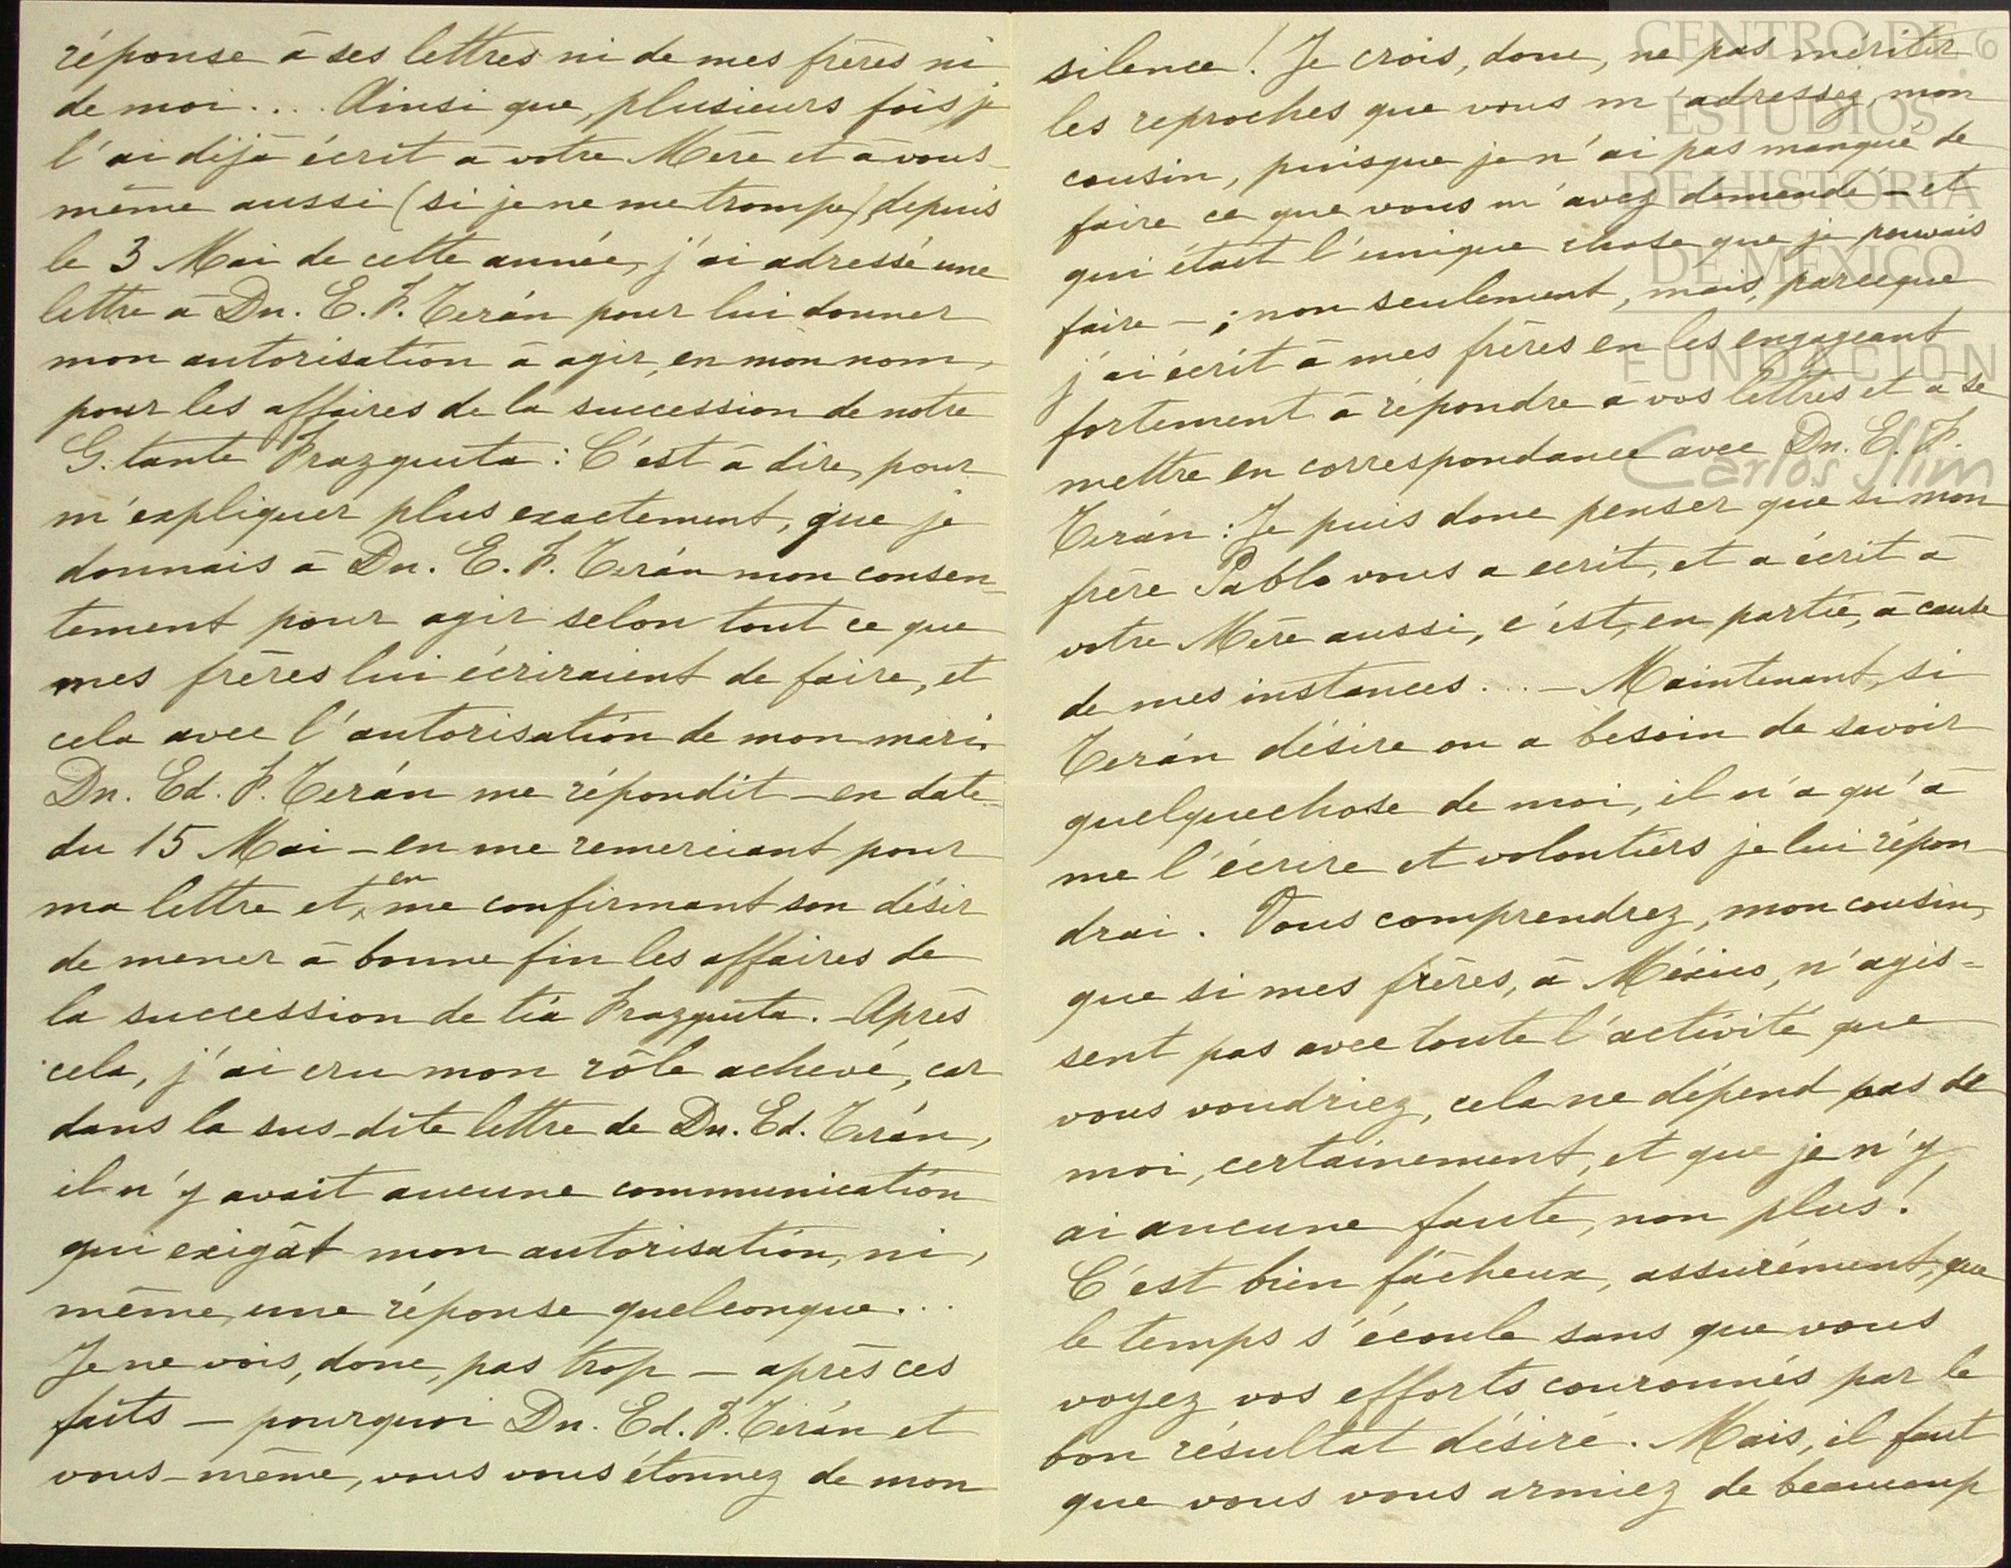 réponse à ses lettres ni de mes frères ni
de moi.... Ainsi que, plusieurs fois, je
l'ai déjà écrit à votre Mère et à vous-
même aussi (si je ne me trompe) depuis
le 3 Mai de cette année, j'ai adressé une
lettre à Dn. E. F. Terán pour lui donner
mon autorisation à agir, en mon nom,
pour les affaires de la succession de notre
G. tante Frazquita: C'est à dire, pour
m'expliquer plus exactement, que je
donnais à Dn. E. F. Terán mon consen-
tement pour agir selon tout ce que
mes frères lui écriraient de faire, et
cela avec l'autorisation de mon mari.
Dn. Ed. F. Terán me répondit - en date
du 15 Mai - en me remerciant pour
ma lettre et, en me confirmant son désir
de mener à bonne fin les affaires de
la succession de tía Frazquita. - Après
cela, j'ai cru mon rôle achevé, car
dans la sus-dite lettre de Dn. Ed. Terán,
il n'y avait aucune communication
qui exigât mon autorisation, ni,
même, une réponse quelconque...
Je ne vois, donc, pas trop - après ces
faits - pourquoi Dn. Ed. F. Terán et
vous-même, vous vous étonnez de mon
silence! Je crois, donc, ne pas mériter
les reproches que vous m'adressez mon
cousin, puisque je n'ai pas manqué de
faire ce que vous m'avez demandé - et
qui était l'unique chose que je pouvais
faire - ; non seulement, mais, parceque
j'ai écrit à mes frères en les engageant
fortement à répondre à vos lettres et à se
mettre en correspondance avec Dn. E. F.
Terán: Je puis donc penser que si mon
frère Pablo vous a ecrit, et a écrit à
votre Mère aussi, c'est, en partie, à cause
de mes instances... - Maintenant, si
Terán désire ou a besoin de savoir
quelquechose de moi, il n'a qu'à
me l'écrire et volontiers je lui répon-
drai. Vous comprendrez, mon cousin,
que si mes frères, à México, n'agis-
sent pas avec toute l'activité que
vous voudriez, cela ne dépend pas de
moi, certainement, et que je n'y
ai aucune faute, non plus!
C'est bien fâcheux, assurément, que
le temps s'écoule sans que vous
voyez vos efforts couronnés par le
bon résultat désiré. Mais, il faut
que vous vous armiez de beaucoup
CENTRO DE
ESTUDIOS
DE HISTORIA
DE MÉXICO
FUNDACIÓN
Carlos Slim
6